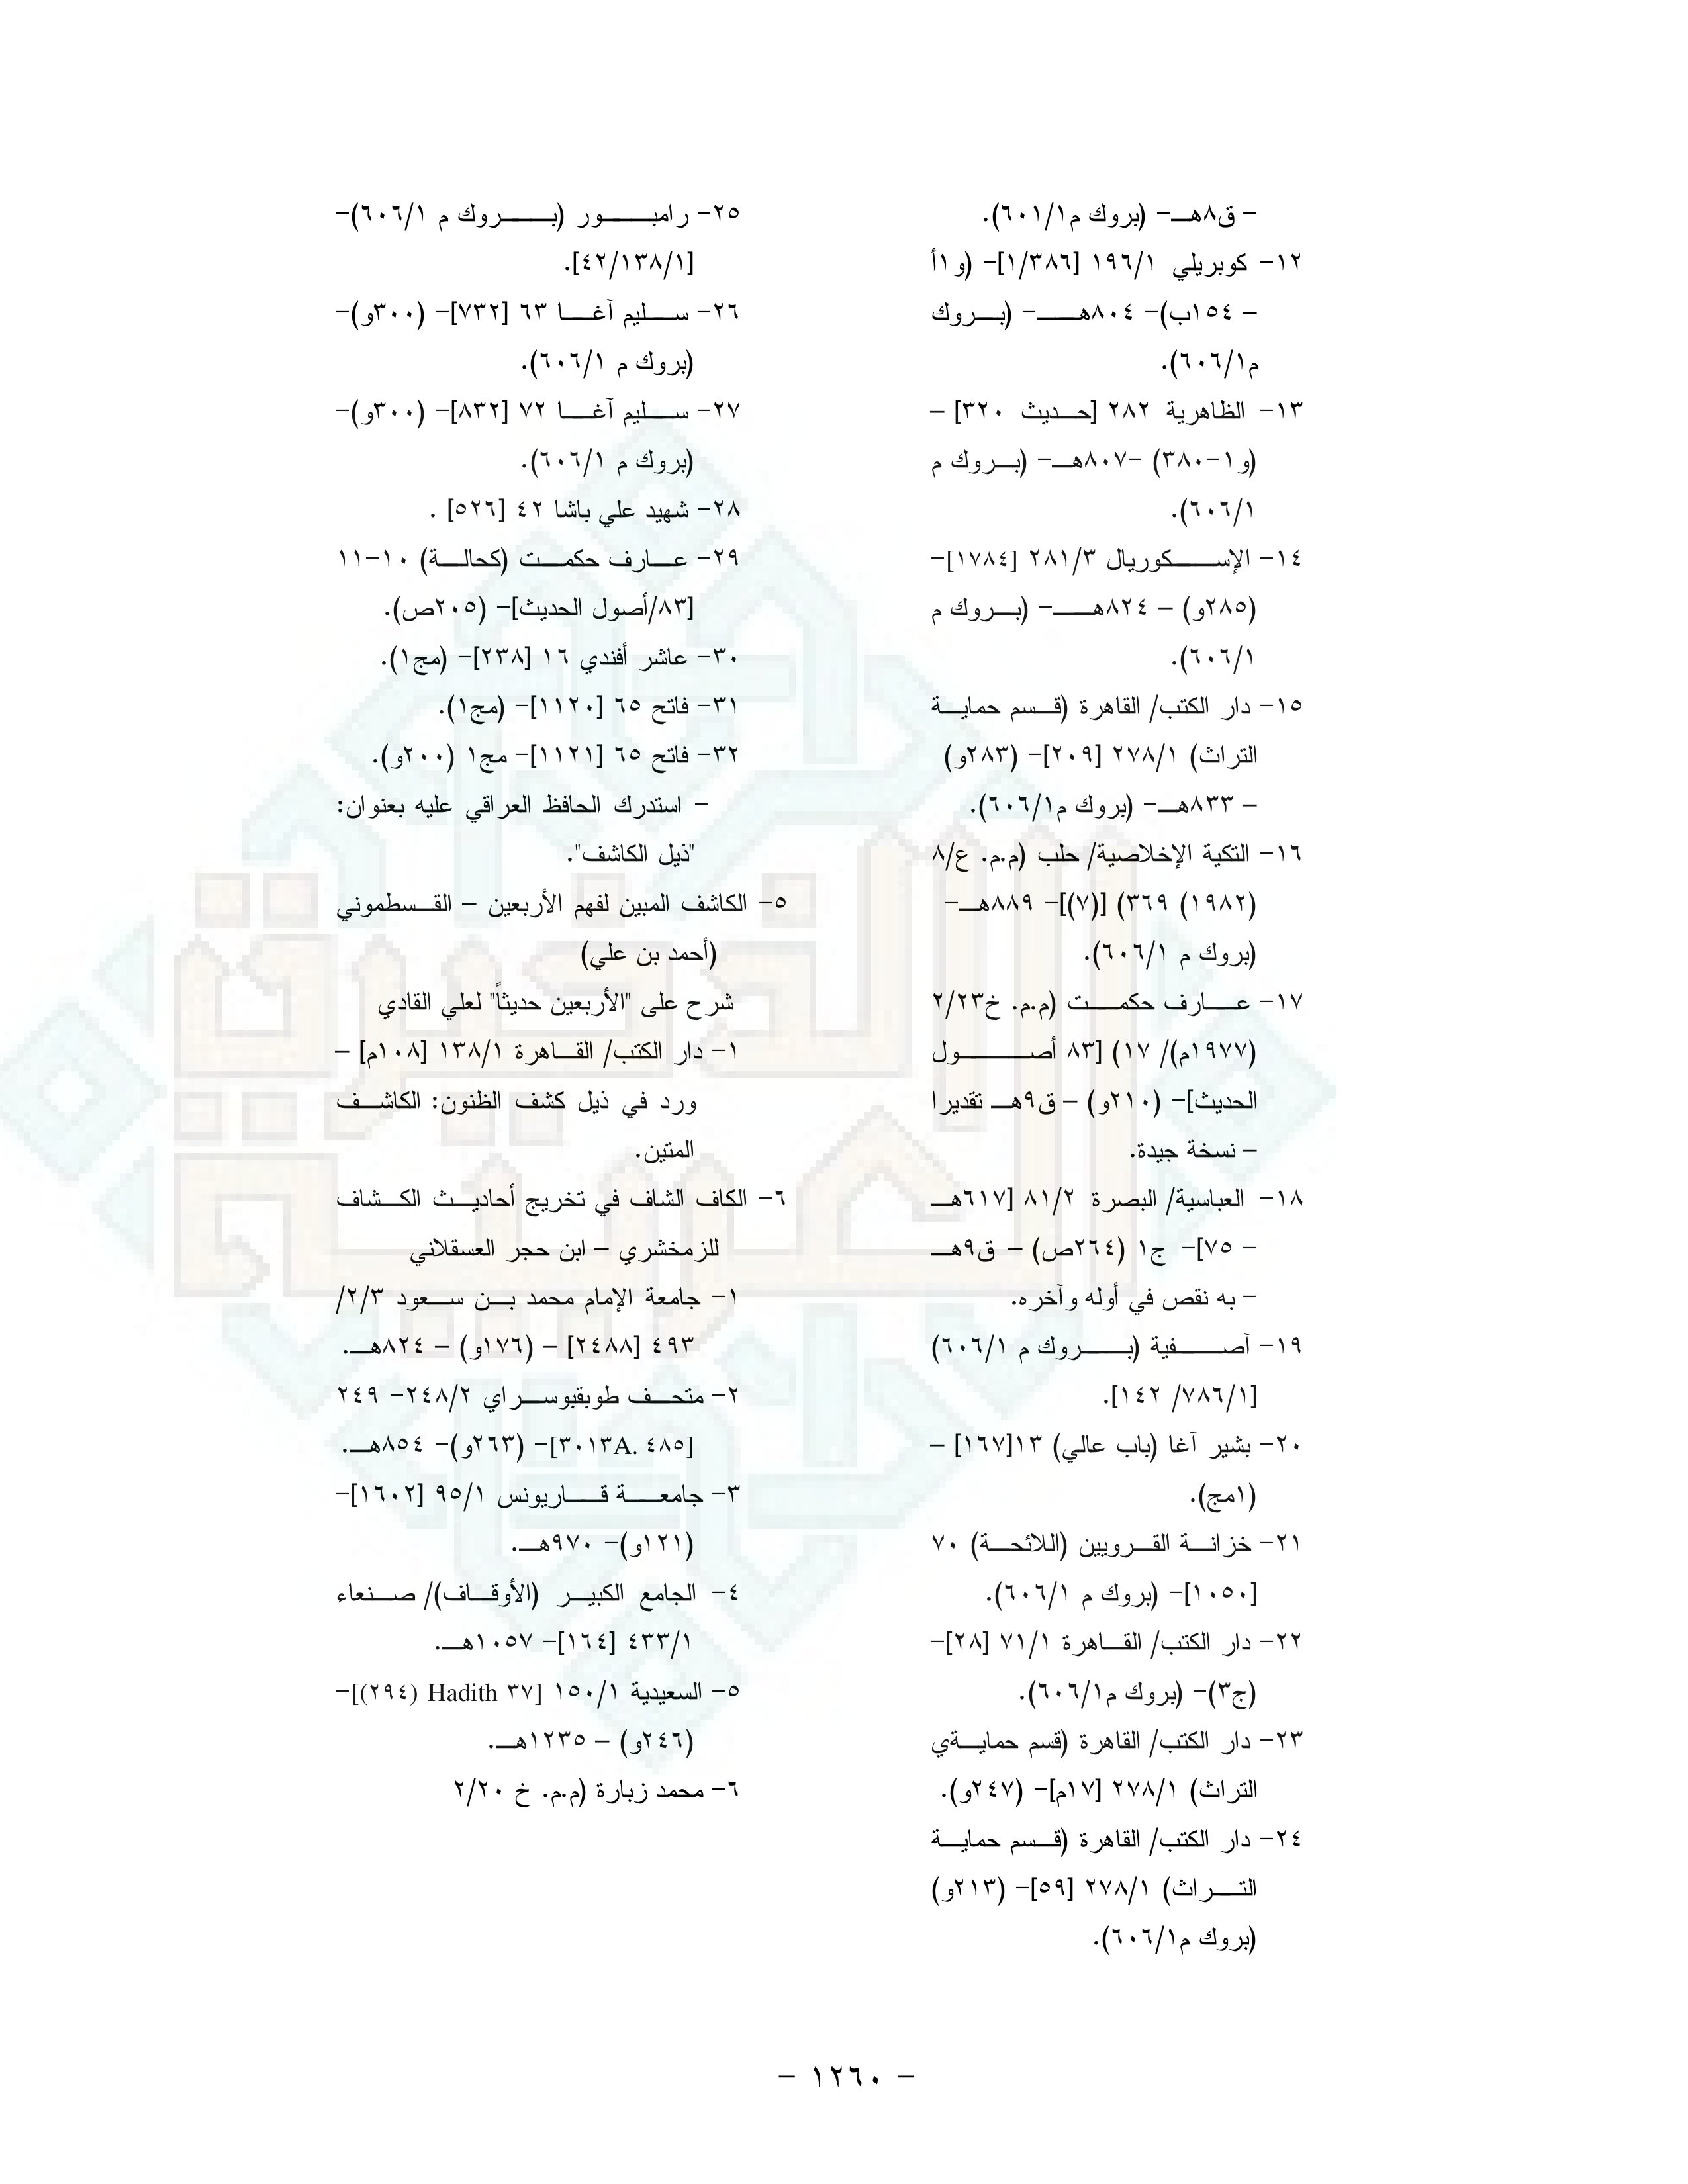 – ق٨هـ– (بروك م٦٠١/١).
١٢– كوبريلي ١٩٦/١ [١/٣٨٦]– (و١أ
– ١٥٤ب)– ٨٠٤هـ– (بروك
م٦٠٦/١).
١٣– الظاهرية ٢٨٢ [حديث ٣٢٠] –
(و١–٣٨٠) –٨٠٧هـ– (بروك م
٦٠٦/١).
١٤– الإسكوريال ٢٨١/٣ [١٧٨٤]–
(٢٨٥و) – ٨٢٤هـ– (بروك م
٦٠٦/١).
١٥– دار الكتب/ القاهرة (قسم حماية
التراث) ٢٧٨/١ [٢٠٩]– (٢٨٣و)
– ٨٣٣هـ– (بروك م٦٠٦/١).
١٦– التكية الإخلاصية/ حلب (م.م. ع/٨
(١٩٨٢) ٣٦٩) [(٧)]– ٨٨٩هـ–
(بروك م ٦٠٦/١).
١٧– عارف حكمت (م.م. خ٢/٢٣
(١٩٧٧م)/ ١٧) [٨٣ أصول
الحديث]– (٢١٠و) – ق٩هـ تقديرا
– نسخة جيدة.
١٨– العباسية/ البصرة ٨١/٢ [٦١٧هـ
– ٧٥]– ج١ (٢٦٤ص) – ق٩هـ
– به نقص في أوله وآخره.
١٩– آصفية (بروك م ٦٠٦/١)
[١/٧٨٦/ ١٤٢].
٢٠– بشير آغا (باب عالي) ١٣[١٦٧] –
(١مج).
٢١– خزانة القرويين (اللائحة) ٧٠
[١٠٥٠]– (بروك م ٦٠٦/١).
٢٢– دار الكتب/ القاهرة ٧١/١ [٢٨]–
(ج٣)– (بروك م٦٠٦/١).
٢٣– دار الكتب/ القاهرة (قسم حمايةي
التراث) ٢٧٨/١ [١٧م]– (٢٤٧و).
٢٤– دار الكتب/ القاهرة (قسم حماية
التراث) ٢٧٨/١ [٥٩]– (٢١٣و)
(بروك م٦٠٦/١).
٢٥– رامبور (بروك م ٦٠٦/١)–
[٤٢/١٣٨/١].
٢٦– سليم آغا ٦٣ [٧٣٢]– (٣٠٠و)–
(بروك م ٦٠٦/١).
٢٧– سليم آغا ٧٢ [٨٣٢]– (٣٠٠و)–
(بروك م ٦٠٦/١).
٢٨– شهيد علي باشا ٤٢ [٥٢٦] .
٢٩– عارف حكمت (كحالة) ١٠–١١
[٨٣/أصول الحديث]– (٢٠٥ص).
٣٠– عاشر أفندي ١٦ [٢٣٨]– (مج١).
٣١– فاتح ٦٥ [١١٢٠]– (مج١).
٣٢– فاتح ٦٥ [١١٢١]– مج١ (٢٠٠و).
– استدرك الحافظ العراقي عليه بعنوان:
"ذيل الكاشف".
٥– الكاشف المبين لفهم الأربعين – القسطموني
(أحمد بن علي)
شرح على "الأربعين حديثاً" لعلي القادي
١– دار الكتب/ القاهرة ١٣٨/١ [١٠٨م] –
ورد في ذيل كشف الظنون: الكاشف
المتين.
٦– الكاف الشاف في تخريج أحاديث الكشاف
للزمخشري – ابن حجر العسقلاني
١– جامعة الإمام محمد بن سعود ٢/٣/
٤٩٣ [٢٤٨٨] – (١٧٦و) – ٨٢٤هـ.
٢– متحف طوبقبوسراي ٢٤٨/٢– ٢٤٩
[٤٨٥ .A٣٠١٣]– (٢٦٣و)– ٨٥٤هـ.
٣– جامعة قاريونس ٩٥/١ [١٦٠٢]–
(١٢١و)– ٩٧٠هـ.
٤– الجامع الكبير (الأوقاف)/ صنعاء
٤٣٣/١ [١٦٤]– ١٠٥٧هـ.
٥– السعيدية ١٥٠/١ [٣٧ Hadith (٢٩٤)]–
(٢٤٦و) – ١٢٣٥هـ.
٦– محمد زبارة (م.م. خ ٢/٢٠
– ١٢٦٠ –